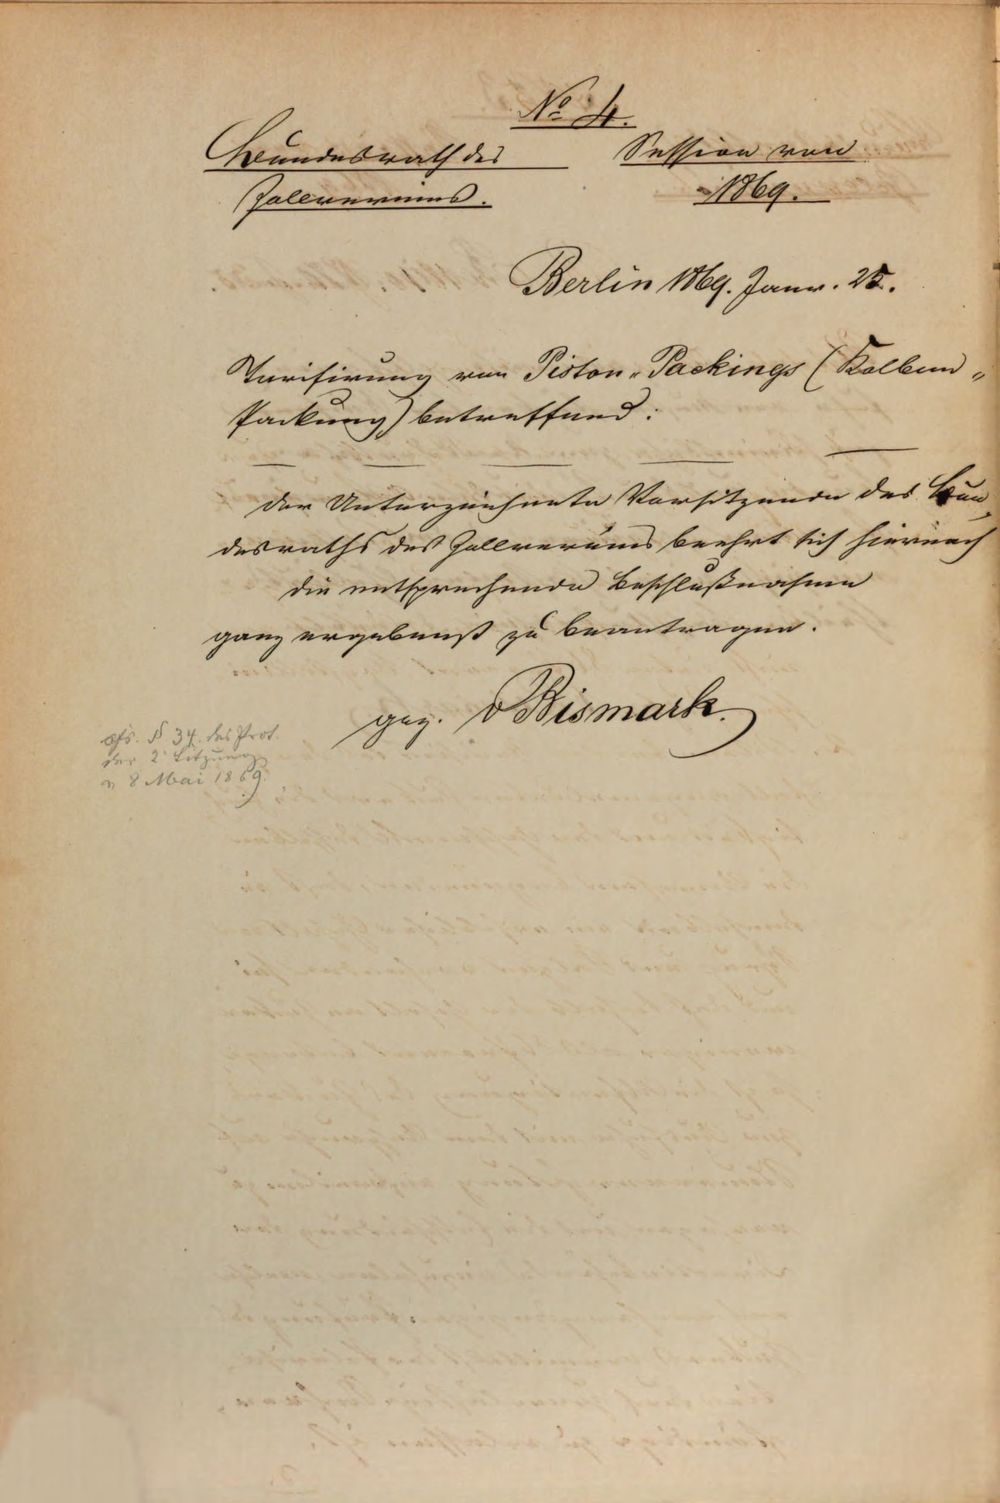 No 4.
Bundesrath des Session von
Zollvereins. 1869.
Berlin 1869. Janr. 25.
Tarifirung von Piston-Packings (Kolben-
Packung) betreffend:
Der Unterzeichnete Vorsitzende des Bun-
desraths des Zollvereins beehrt sich hiernach
die entsprechende Beschlußnahme
ganz ergebenst zu beantragen.
gez. v Bismark.
cfr. § 34. des Prot.
der 2 Sitzung
v 8 Mai 1869.